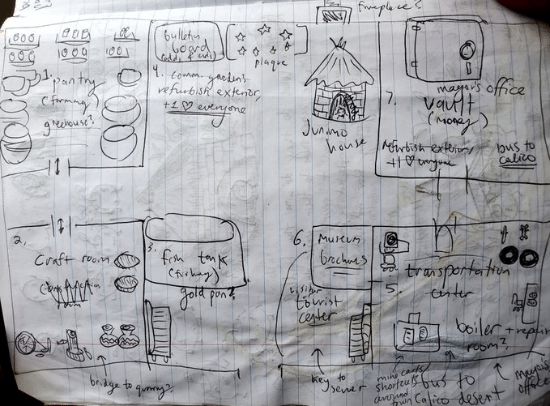 fireplace?
bulletin
board
plaque
1. pantry
(farming)
greenhouse?
4. comm. gardens
refurbish exterior,
+1 ♡ everyone
Junimo
house
mayor's office
7. vault
(money)
refurbish exterior,
+1 ♡ everyone
bus to
calico
2.
Craft room
3. fish tank
(fishing)
gold pan?
6. Museum
brochures
visitor
tourist
center
5. transportation
center
boiler + repair
room?
bridge to quarry?
key to
sewer
mine carts
shortcuts
around
town
bus to
calico desert
mayor's
office